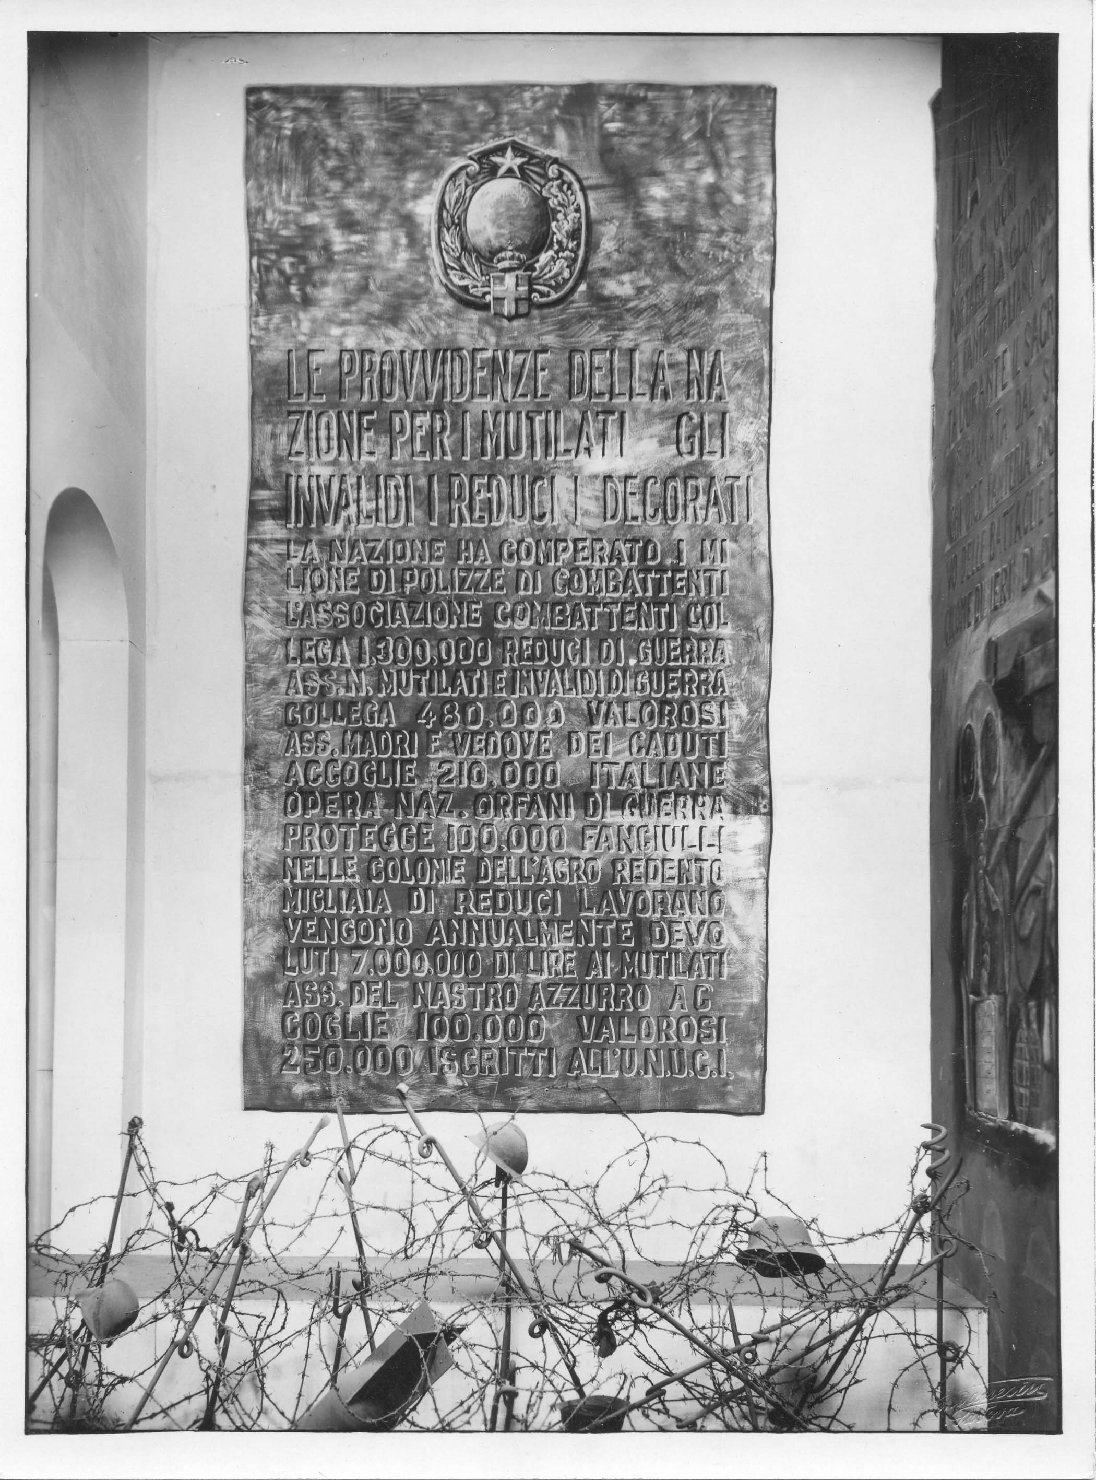 LE PROVVIDENZE DELLA NA
ZIONE PER I MUTILATI GLI
INVALIDI I REDUCI I DECORATI
LA NAZIONE HA COMPERATO I MI
LIONE DI POLIZZE DI COMBATTENTI
L'ASSOCIAZIONE COMBATTENTI COL
LEGA 1.300.000 REDUCI DI GUERRA
ASS. N. MUTILATI E INVALIDI DI GUERRA
COLLEGA 480.000 VALOROSI
ASS. MADRI E VEDOVE DEI CADUTI
ACCOGLIE 210.000 ITALIANE
OPERA NAZ. ORFANI DI GUERRA
PROTEGGE 100.000 FANCIULLI
NELLE COLONIE DELL'AGRO REDENTO
MIGLIAIA DI REDUCI LAVORANO
VENGONO ANNUALMENTE DEVO
LUTI 7.000.000 DI LIRE AI MUTILATI
ASS. DEL NASTRO AZZURRO AC
COGLIE 100.000 VALOROSI
250.000 ISCRITTI ALL'U.N.U.C.I.